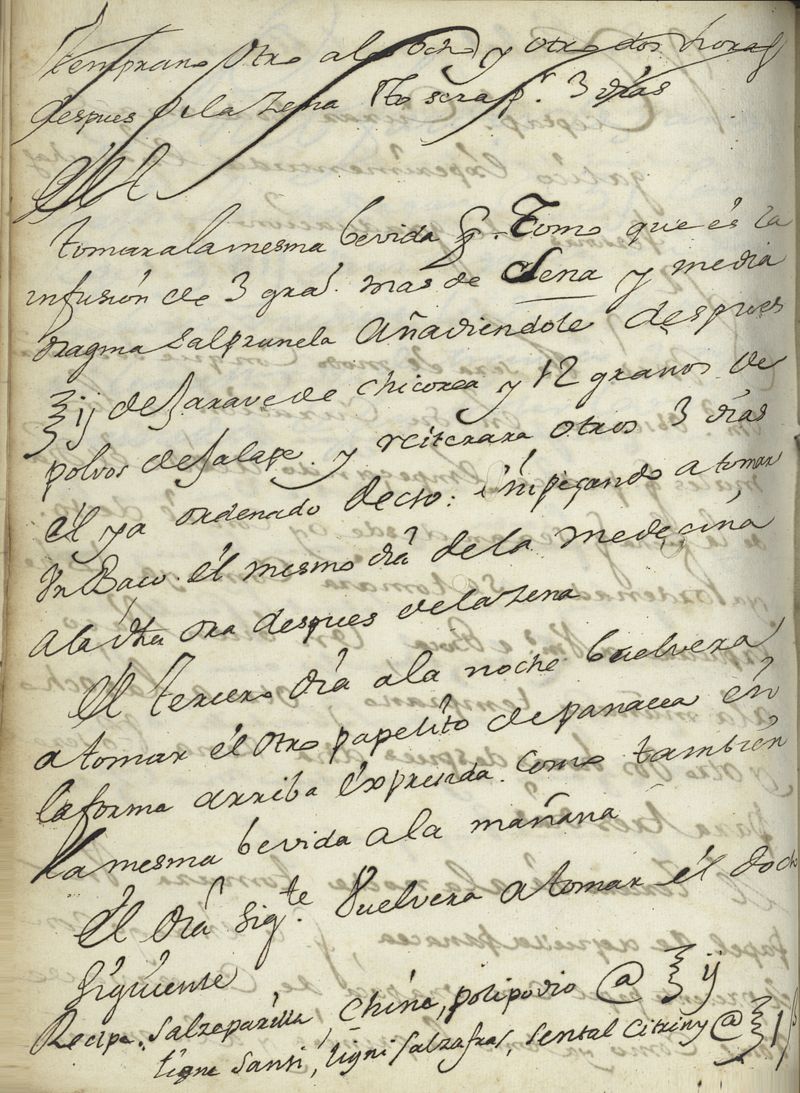 temprano otro a las ocho y otro dos horas
despues de la zena Yto sera pr. 3 días
El
tomara la mesma bevida ℥. Tomo que és la
infusión de 3 gras. mas de Sena y media
dragma Salprunela Añadiendole despues
℥ij de Jarave de chicorea y 12 granos de
polvos de Jalape. y reiterara otros 3 días
él ya ordenado decto: émpeçando a tomar
Un Baco. él mesmo día de la medeçina
a la dha ora despues de la zena
El tercero día a la noche buelvera
a tomar él otro papelito de panacea én
la forma arriba éxpresada. como también
la mesma bevida a la mañana
Él día sigte. Vuelvera a tomar él Doct
Siguiente
Recipe. Salzeparilla, Chine, polipodio @ ℥ij
ligne Santi, ligni Salzafras, Sental Citriny @ ℥1